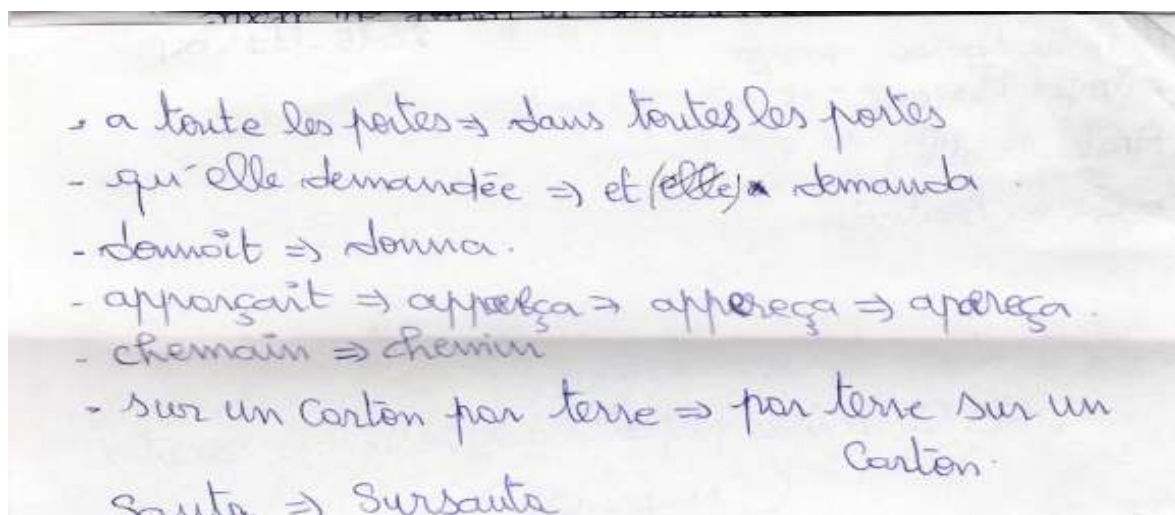 - a toute les portes ⇒ dans toutes les portes
- qu'elle demandée ⇒ et (elle) demanda.
- donnoit ⇒ donna.
- apparçait ⇒ apparça ⇒ appereça ⇒ apareça.
- chemain ⇒ chemin
- sur un carton par terre ⇒ par terre sur un
carton.
Sauta ⇒ Sursauta